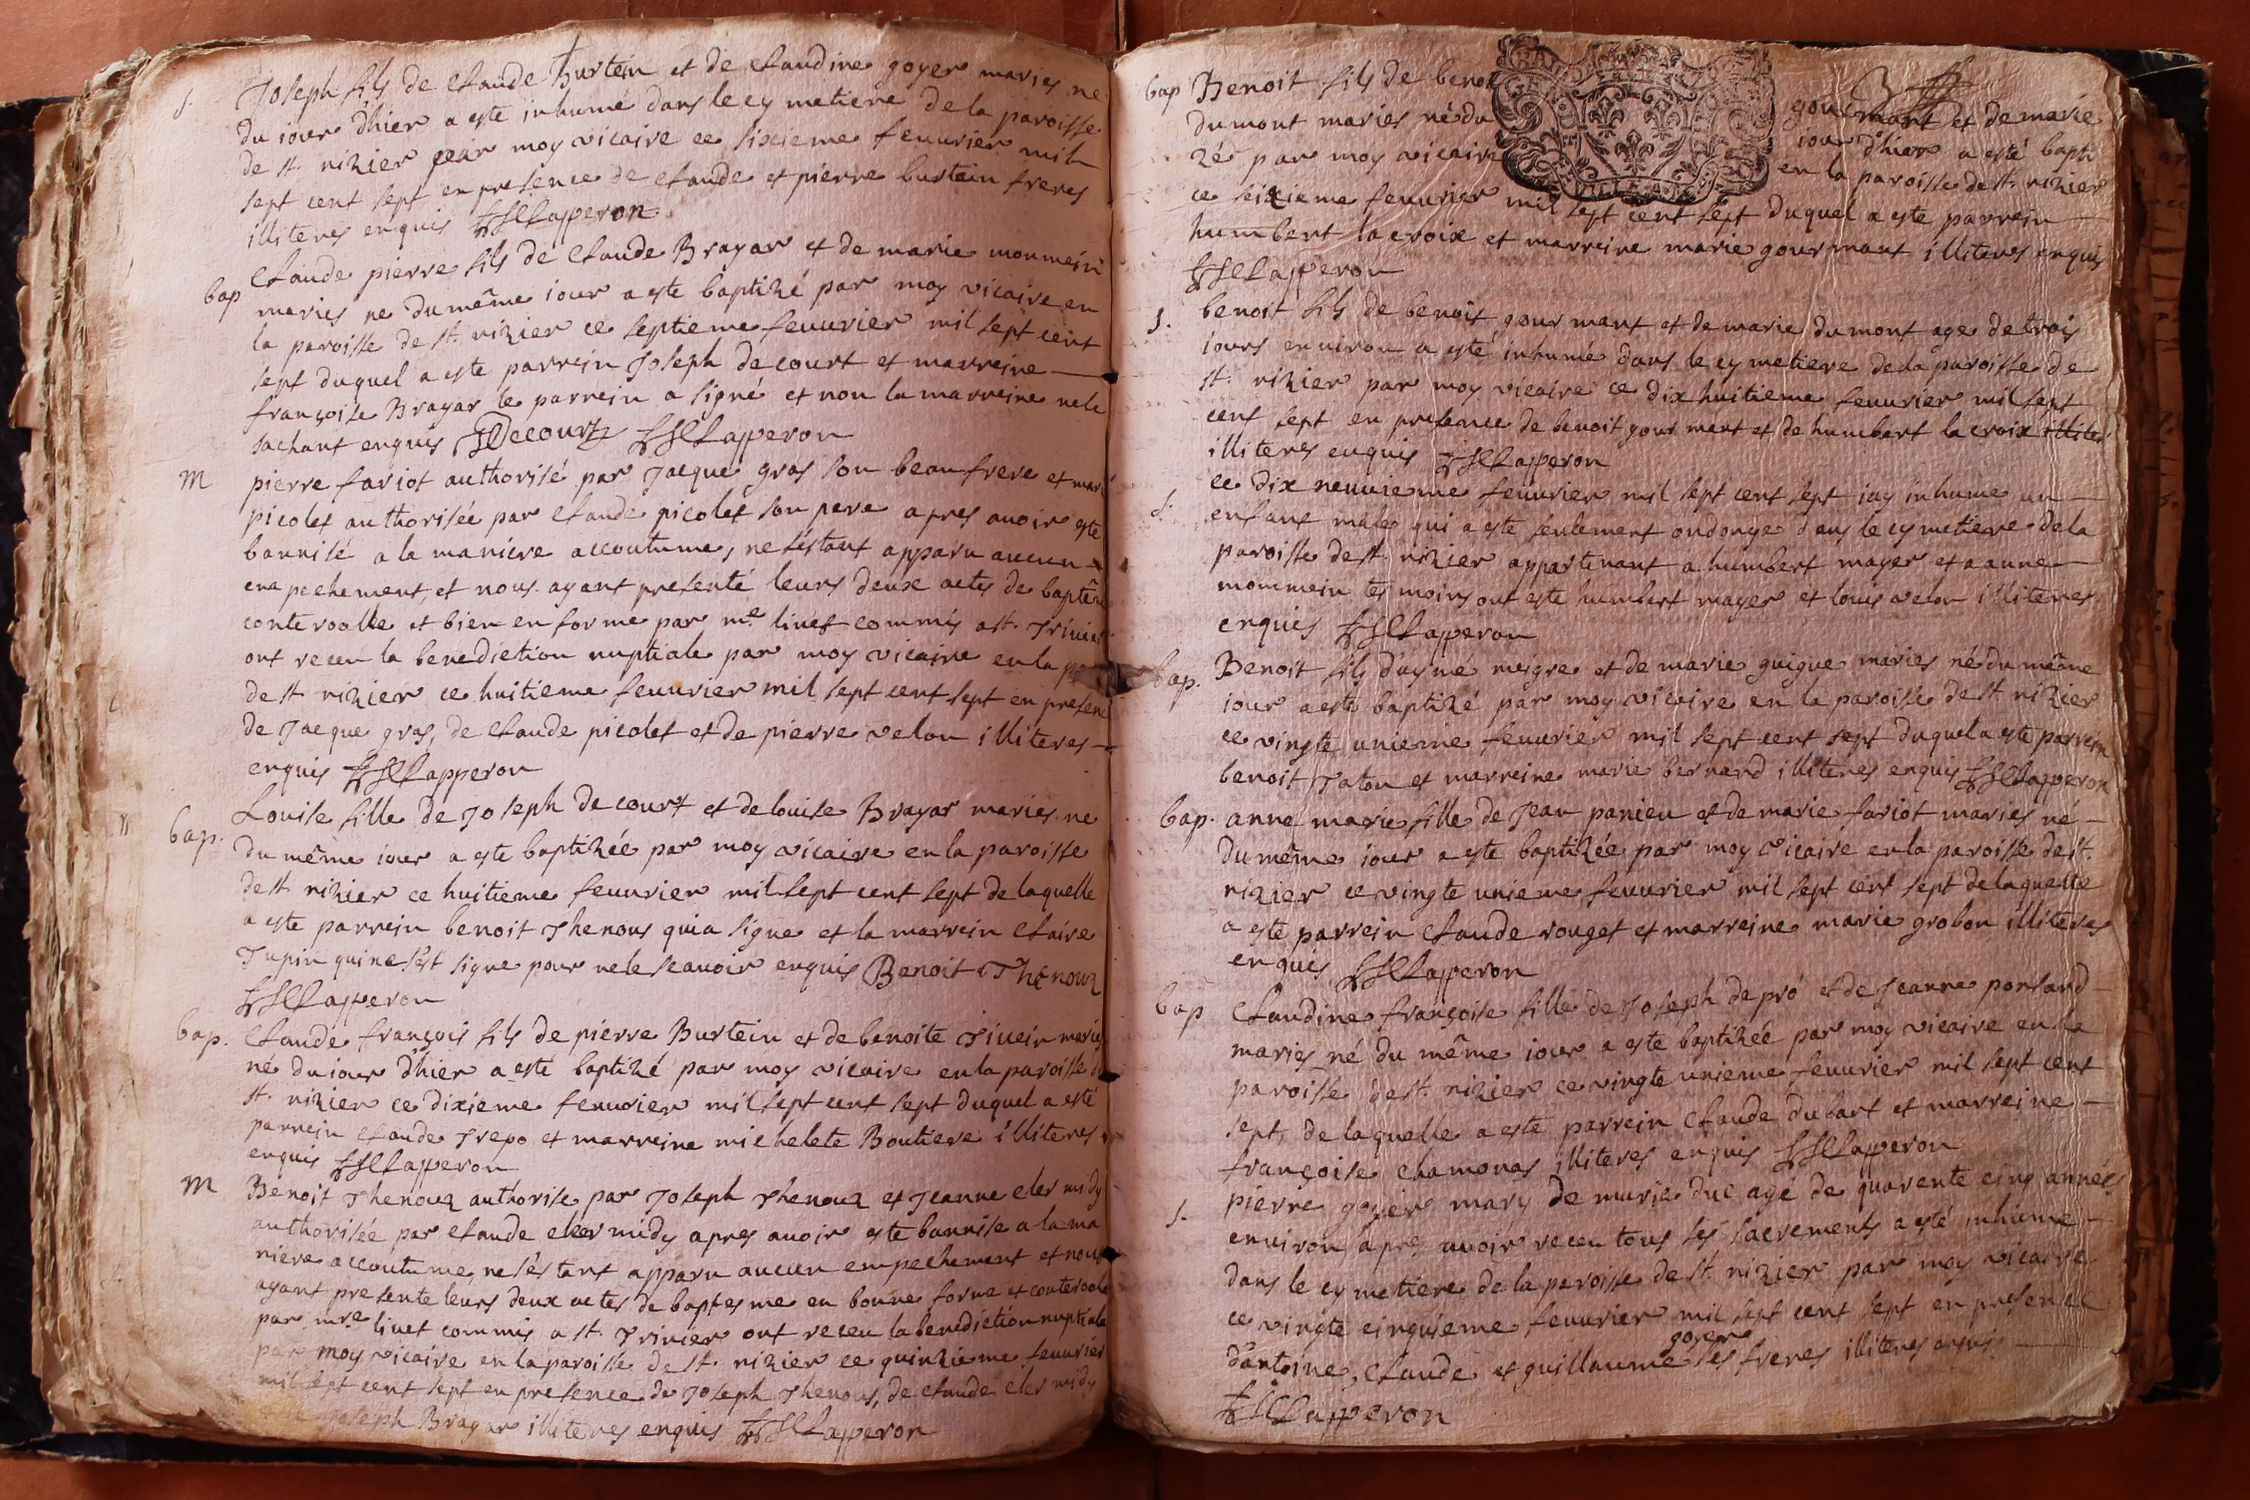 s. Joseph fils de Claude Burtein et de Claudine goyer maries ne
du iour d'hier a este inhumé dans le cymetiere de la paroisse
de st. nizier par moy vicaire ce sixieme feuurier mil
sept cent sept en presence de Claude et pierre burtein freres
illiteres enquis Lapperon
bap Claude pierre fils de Claude Brayar et de marie monmein
maries ne du même iour a este baptizé par moy vicaire en
la paroisse de st. nizier ce septieme feuurier mil sept cent
sept duquel a este parrein Joseph decourt et marreine
françoise Brayar le parrein a signé et non la marreine ne le
sachant enquis JDecourt Lapperon
M pierre fariot authorisé par Jacque gras son beaufrere et marie
picolet authorisée par Claude picolet son pere apres auoir este
bannisé a la maniere accoutume, ne s'estant apparu aucun
enpechement, et nous ayant presenté leurs deux actes de baptême
conteroolle et bien en forme par me. linet commis a st. Trivier
ont receu la benediction nuptiale par moy vicaire en la
de st. nizier ce huitieme feuurier mil sept cent sept en presence
de Jacque gras, de Claude picolet et de pierre velon illiteres
enquis Lapperon
bap. Louise fille de Joseph decourt et de louise Brayar maries ne
du même iour a este baptizée par moy vicaire en la paroisse
de st. nizier ce huitieme feuurier mil sept cent sept de laquelle
a este parrein benoit Thenous qui a signe et la marrein Claire
Tupin qui ne s'est signe pour ne le scauoir enquis Benoit Thénouz
Lapperon
bap. Claude françois fils de pierre Burtein et de benoite Tiuein maries
né du iour d'hier a esté baptizé par moy vicaire en la paroisse de
st. nizier ce dixieme feuurier mil sept cent sept duquel a esté
parrein Claude Trepo et marreine michelete Boutiere illiteres
enquis Lapperon
M Bénoit Thenouz authorise par Joseph Thenouz et Jeanne clermidy
authorisée par Claude clermidy apres auoir este bannise a la ma
niere accoutume, ne s'estant apparu aucun empechement et nous
ayant presente leurs deux actes de baptesme en bonne forme et conteroole
par mre. linet commis a st. Trivier ont receu la bénédiction nuptiale
par moy vicaire en la paroisse de st. nizier ce quinzieme feuurier
mil sept cent sept en presence de Joseph Thenous, de Claude clermidy
Joseph Brayar illiteres enquis Lapperon
bap Benoit fils de benoit gourmant et de marie
dumont maries né du iour d'hier a esté bapti
zé par moy vicaire en la paroisse de st. nizier
ce seizieme feuurier mil sept cent sept duquel a este parrein
humbert lacroix et marreine marie gourmant illiteres enquis
Lapperon
s. benoit fils de benoit gourmant et de marie dumont age de trois
iours enuiron a esté inhumé dans le cymetiere de la paroisse de
st. nizier par moy vicaire ce dix huitieme feuurier mil sept
cent sept en presence de benoit gourmant et de humbert lacroix
illiteres enquis Lapperon
s. ce dix neuuieme feuurier mil sept cent sept iay inhume un
enfant male qui a este seulement ondoyé dans le cymetiere de la
paroisse de st. nizier appartenant a humbert mayer et a anne
monmein tesmoins ont este humbert mayer et louis velon illiteres
enquis Lapperon
bap. Benoit fils d'ayné meigre et de marie guigue maries né du même
iour a este baptizé par moy vicaire en la paroisse de st. nizier
ce vingte unieme feuurier mil sept cent sept duquel a este parrein
benoit Taton et marreine marie bernard illiteres enquis Lapperon
bap. anne marie fille de Jean panieu et de marie fariot maries né
du même iour a este baptizée par moy vicaire en la paroisse de st.
nizier ce vingte unieme feuurier mil sept cent sept de laquelle
a este parrein Claude rouget et marreine marie grobon illiteres
enquis Lapperon
bap Claudine françoise fille de Joseph depró et de Jeanne ponsard
maries né du même iour a este baptizée par moy vicaire en la
paroisse de st. nizier ce vingte unieme feuurier mil sept cent
sept, de laquelle a este parrein Claude dubart et marreine
françoise chamonas illiteres enquis Lapperon
s. pierre goyer mary de marie duc agé de quarente cinq années
enuiron apres auoir receu tous ses sacrements a esté inhume
dans le cymetiere de la paroisse de st. nizier par moy vicaire
ce vingte cinquieme feuurier mil sept cent sept en presence
d'antoine, Claude et guillaume goyer ses freres illiteres enquis
Lapperon